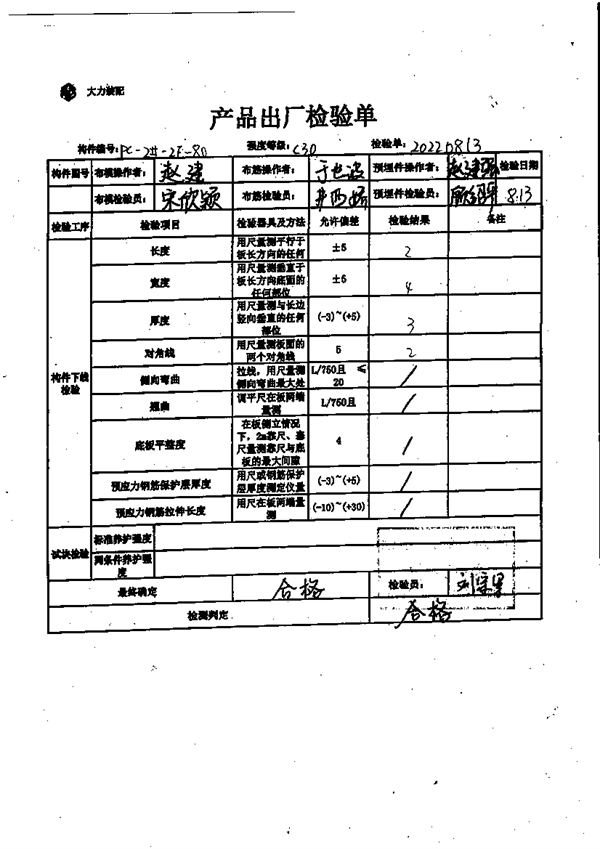 大力装配
产品出厂检验单
构件编号: PC-2#-2F-80 强度等级: C30 检验单: 20220813
构件图号 布模操作者: 赵建 布筋操作者: 预埋件操作者: 赵建强 检验日期
布模检验员: 宋欣颖 布筋检验员: 预埋件检验员: 8.13
检验工序 检验项目 检验器具及方法 允许偏差 检验结果 备注
构件下线检验
长度 用尺量测平行于板长方向的任何 ±5 2
宽度 用尺量测垂直于板长方向底面的任何部位 ±5 4
厚度 用尺量测与长边竖向垂直的任何部位 (-3)~(+5) 3
对角线 用尺量测板面的两个对角线 5 2
侧向弯曲 拉线，用尺量测侧向弯曲最大处 L/750且 ≤20 /
翘曲 调平尺在板两端量测 L/750且 /
底板平整度 在板侧立情况下，2m靠尺、塞尺量测靠尺与底板的最大间隙 4 /
预应力钢筋保护层厚度 用尺或钢筋保护层厚度测定仪量 (-3)~(+5) /
预应力钢筋拉伸长度 用尺在板两端量测 (-10)~(+30) /
试块检验 标准养护强度
同条件养护强度
最终确定 合格 检验员:
检测判定 合格